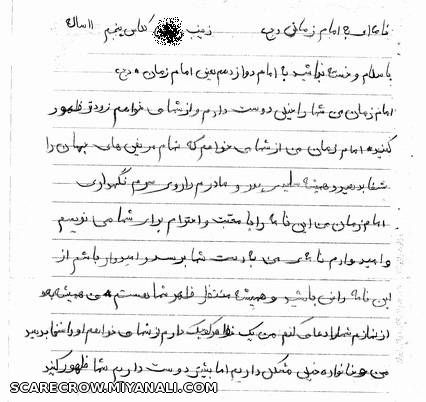 نامه ای به امام زمانی (عج) زینب کلاس پنجم ۱۱ ساله
با سلام و خسته نباشید به امام دوازدهم یعنی امام زمان (عج)
امام زمان من شما را خیلی دوست دارم و از شما می خواهم زودتر ظهور
کنید، امام زمان من از شما می خواهم که تمام مریض های جهان را
شفا بدهید و همیشه پدر و مادرم را روی سرم نگهداری
امام زمان من این نامه را با محبت و احترام برای شما می نویسم
و امیدوارم نامه ی من به دست شما برسد و امیدوار باشم از
این نامه راضی باشید و همیشه منتظر ظهور شما هستم من همیشه بعد
از نمازم شما را دعا می کنم من یک خواهر کوچک دارم از شما می خواهم او را شفا بدهید
من و خانواده خیلی مشکل داریم اما بیشتر دوست داریم شما ظهور کنید
SCARECROW.MIYANALI.COM